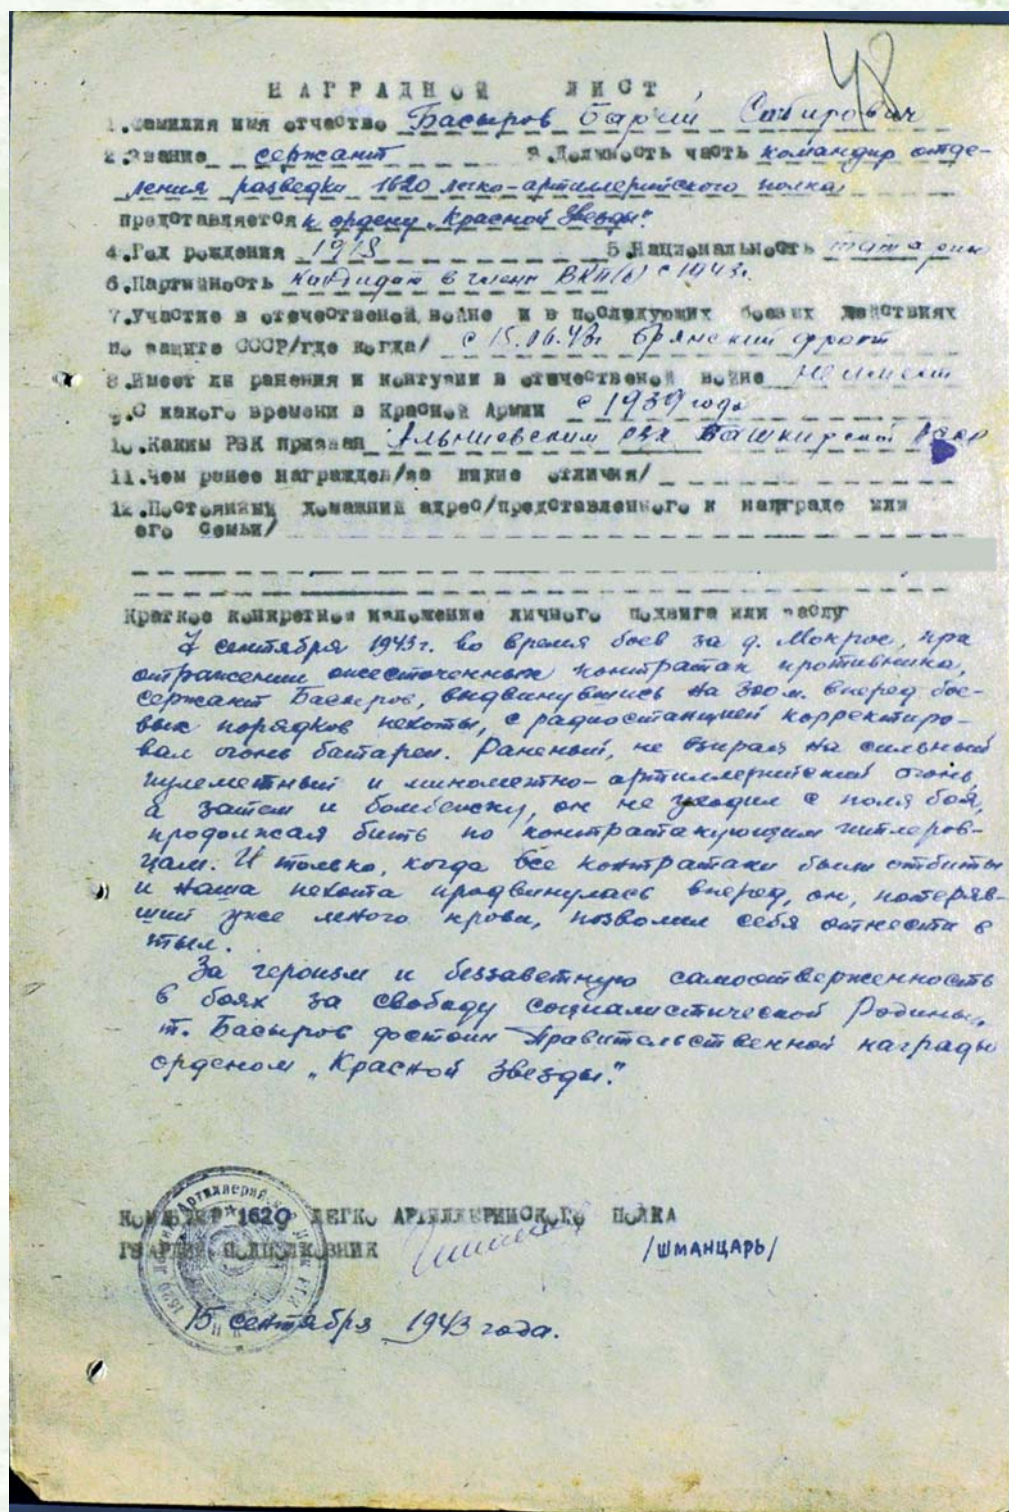 48
НАГРАДНОЙ ЛИСТ
1.Фамилия имя отчество Басыров Барый Сабирович
2.Звание сержант 3.Должность часть командир отде-
ления разведки 1620 легко-артиллерийского полка
представляется к ордену „Красной Звезды".
4.Год рождения 1918 5.Национальность татарин
6.Партийность кандидат в члены ВКП(б) с 1943г.
7.Участие в отечественой войне и в последующих боевых действиях
по защите СССР/где когда/ с 15.06.43г Брянский фронт
8.Имеет ли ранения и контузии в отечественой войне не имеет
9.С какого времени в Красной Армии с 1939 года
10.Каким РВК призван Альшеевским рвк Башкирской АССР
11.Чем ранее награжден/за какие отличия/
12.Постоянный домашний адрес/представленного к награде или
его семьи/
Краткое конкретное изложение личного подвига или заслу
7 сентября 1943г. во время боев за д. Мокрое, при
отражении ожесточенных контратак противника,
сержант Басыров, выдвинувшись на 300 м. вперед бое-
вых порядков пехоты, с радиостанцией корректиро-
вал огонь батареи. Раненый, не взирая на сильный
пулеметный и минометно-артиллерийский огонь,
а затем и бомбежку, он не уходил с поля боя,
продолжая бить по контратакующим гитлеров-
цам. И только, когда все контратаки были отбиты
и наша пехота продвинулась вперед, он, потеряв-
ший уже много крови, позволил себя отнести в
тыл.
За героизм и беззаветную самоотверженность
в боях за свободу социалистической Родины,
т. Басыров достоин Правительственной награды
орденом „Красной Звезды."
КОМАНДИР 1620 ЛЕГКО АРТИЛЛЕРИЙСКОГО ПОЛКА
ГВАРДИИ ПОДПОЛКОВНИК /ШМАНЦАРЬ/
15 сентября 1943 года.